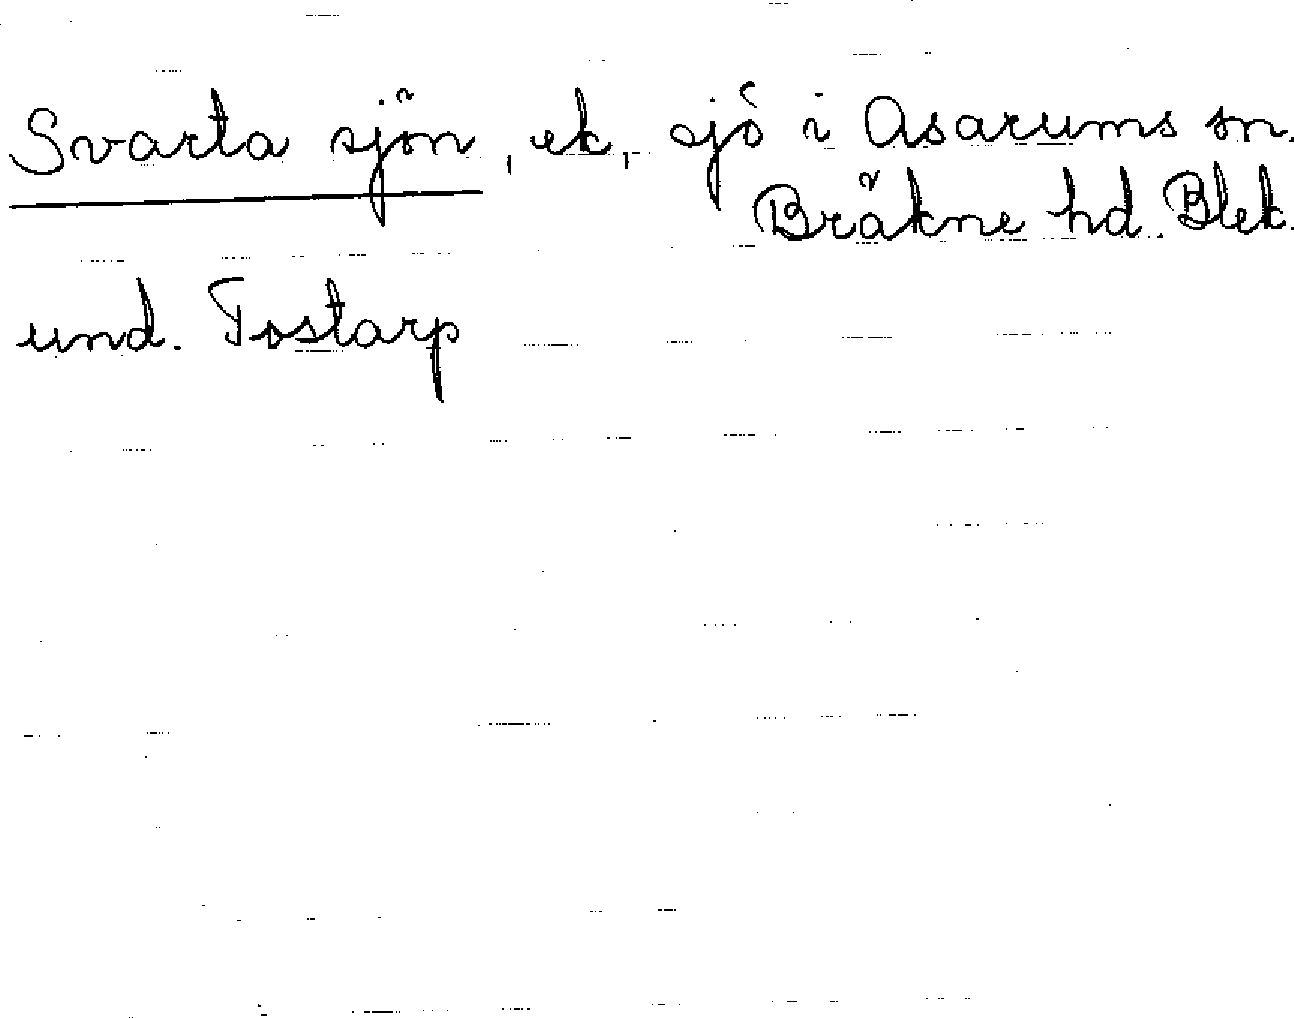 Svarta sjön, ek, sjö i Asarums sn.
Bräkne hd. Blek.
und. Tostarp